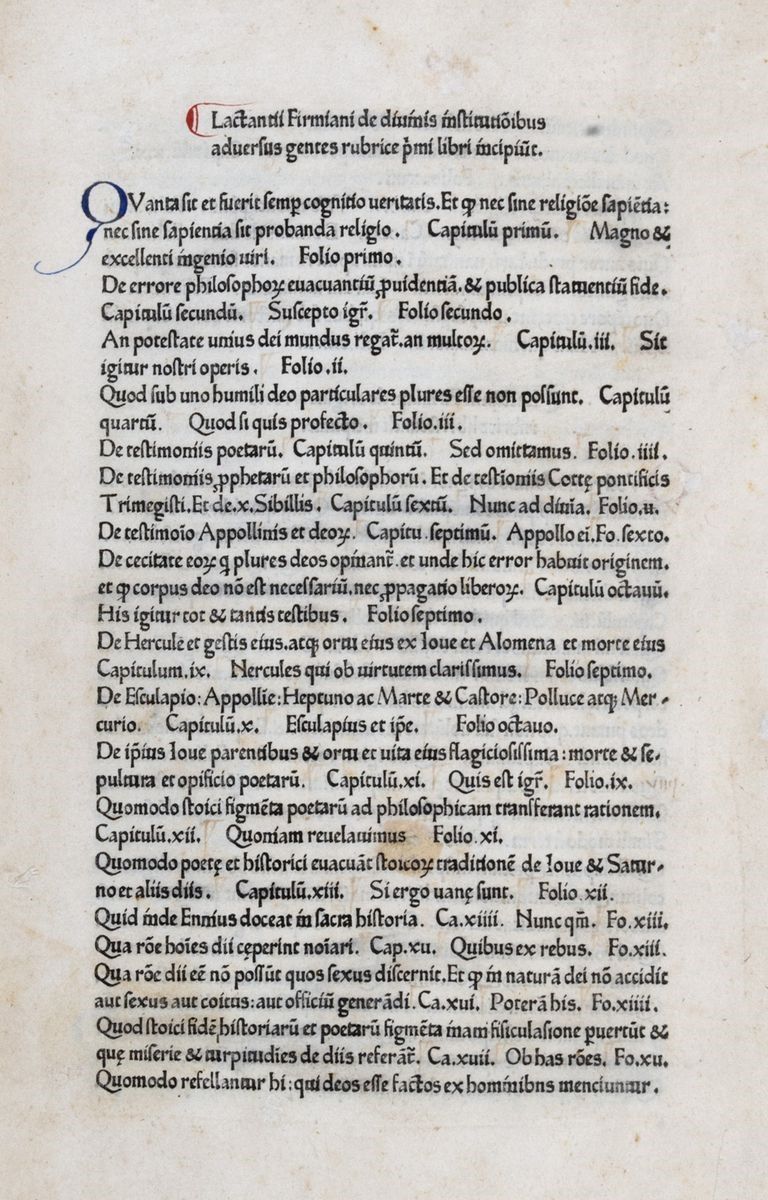 Lactantii Firmiani de diuinis institutiõibus
aduersus gentes rubrice p̃mi libri incipiũt.
QVanta sit et fuerit semꝑ cognitio veritatis. Et ꝙ nec sine religiõe sapiẽtia:
nec sine sapientia sit probanda religio. Capitulũ primũ. Magno &
excellenti ingenio uiri. Folio primo.
De errore philosophoꝝ euacuantiũ ꝓuidentiã. & publica statuentiũ fide.
Capitulũ secundũ. Suscepto igr̃. Folio secundo.
An potestate unius dei mundus regat̃. an multoꝝ. Capitulũ. iii. Sit
igitur nostri operis. Folio. ii.
Quod sub uno humili deo particulares plures esse non possunt. Capitulũ
quartũ. Quod si quis profecto. Folio. iii.
De testimoniis poetarũ. Capitulũ quintũ. Sed omittamus. Folio. iiii.
De testimoniis ꝓphetarũ et philosophorũ. Et de testĩoniis Cottę pontificis
Trimegisti. Et de. x. Sibillis. Capitulũ sextũ. Nunc ad diuĩa. Folio. u.
De testimoĩo Appollinis et deoꝝ. Capitu. septimũ. Appollo ei. Fo. sexto.
De cecitate eoꝝ q̃ plures deos opinant̃. et unde hic error habuit originem.
et ꝙ corpus deo nõ est necessariũ. nec ꝓpagatio liberoꝝ. Capitulũ octauũ.
His igitur tot & tantis testibus. Folio septimo.
De Hercule et gestis eius. atq; ortu eius ex Ioue et Alomena et morte eius
Capitulum. ix. Hercules qui ob uirtutem clarissimus. Folio septimo.
De Esculapio: Appollĩe: Heptuno ac Marte & Castore: Polluce atq; Mer-
curio. Capitulũ. x. Esculapius et ip̃e. Folio octauo.
De ip̃ius Ioue parentibus & ortu et uita eius flagiciosissima: morte & se-
pultura et opificio poetarũ. Capitulũ. xi. Quis est igr̃. Folio. ix.
Quomodo stoici figmẽta poetarũ ad philosophicam transferant rationem.
Capitulũ. xii. Quoniam reuelauimus Folio. xi.
Quomodo poetę et historici euacuãt stoicoꝝ traditionẽ de Ioue & Satur-
no et aliis diis. Capitulũ. xiii. Si ergo uanę sunt. Folio. xii.
Quid inde Ennius doceat in sacra historia. Ca. xiiii. Nunc qm̃. Fo. xiii.
Qua rõe hoĩes dii cęperint noĩari. Cap. xu. Quibus ex rebus. Fo. xiii.
Qua rõe dii eẽ nõ possũt quos sexus discernit. Et ꝙ in naturã dei nõ accidit
aut sexus aut coitus: aut officiũ generãdi. Ca. xui. Poterã his. Fo. xiiii.
Quod stoici fidẽ historiarũ et poetarũ figmẽta inani fisiculasione ꝑuertũt &
quę miserie & turpitudĩes de diis referãt̃. Ca. xuii. Ob has rões. Fo. xu.
Quomodo refellantur hi: qui deos esse factos ex hominibns menciuntur.